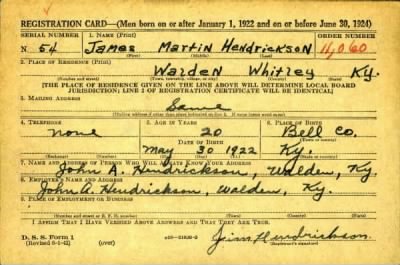 REGISTRATION CARD—(Men born on or after January 1, 1922 and on or before June 30, 1924)
SERIAL NUMBER 1. NAME (Print) ORDER NUMBER
N 54 James Martin Hendrickson 11,060
(First) (Middle) (Last)
2. PLACE OF RESIDENCE (Print)
Walden Whitley Ky.
(Number and street) (Town, township, village, or city) (County) (State)
[THE PLACE OF RESIDENCE GIVEN ON THE LINE ABOVE WILL DETERMINE LOCAL BOARD
JURISDICTION; LINE 2 OF REGISTRATION CERTIFICATE WILL BE IDENTICAL]
3. MAILING ADDRESS
Same
4. TELEPHONE 5. AGE IN YEARS 6. PLACE OF BIRTH
none 20 Bell Co.
DATE OF BIRTH
May 30 1922 Ky.
7. NAME AND ADDRESS OF PERSON WHO WILL ALWAYS KNOW YOUR ADDRESS
John A. Hendrickson, Walden, Ky.
8. EMPLOYER'S NAME AND ADDRESS
John A. Hendrickson, Walden, Ky.
9. PLACE OF EMPLOYMENT OR BUSINESS
(Number and street or R. F. D. number) (Town) (County) (State)
I AFFIRM THAT I HAVE VERIFIED ABOVE ANSWERS AND THAT THEY ARE TRUE.
D. S. S. Form 1
(Revised 6-1-42) (over) Jim Hendrickson
(Registrant's signature)